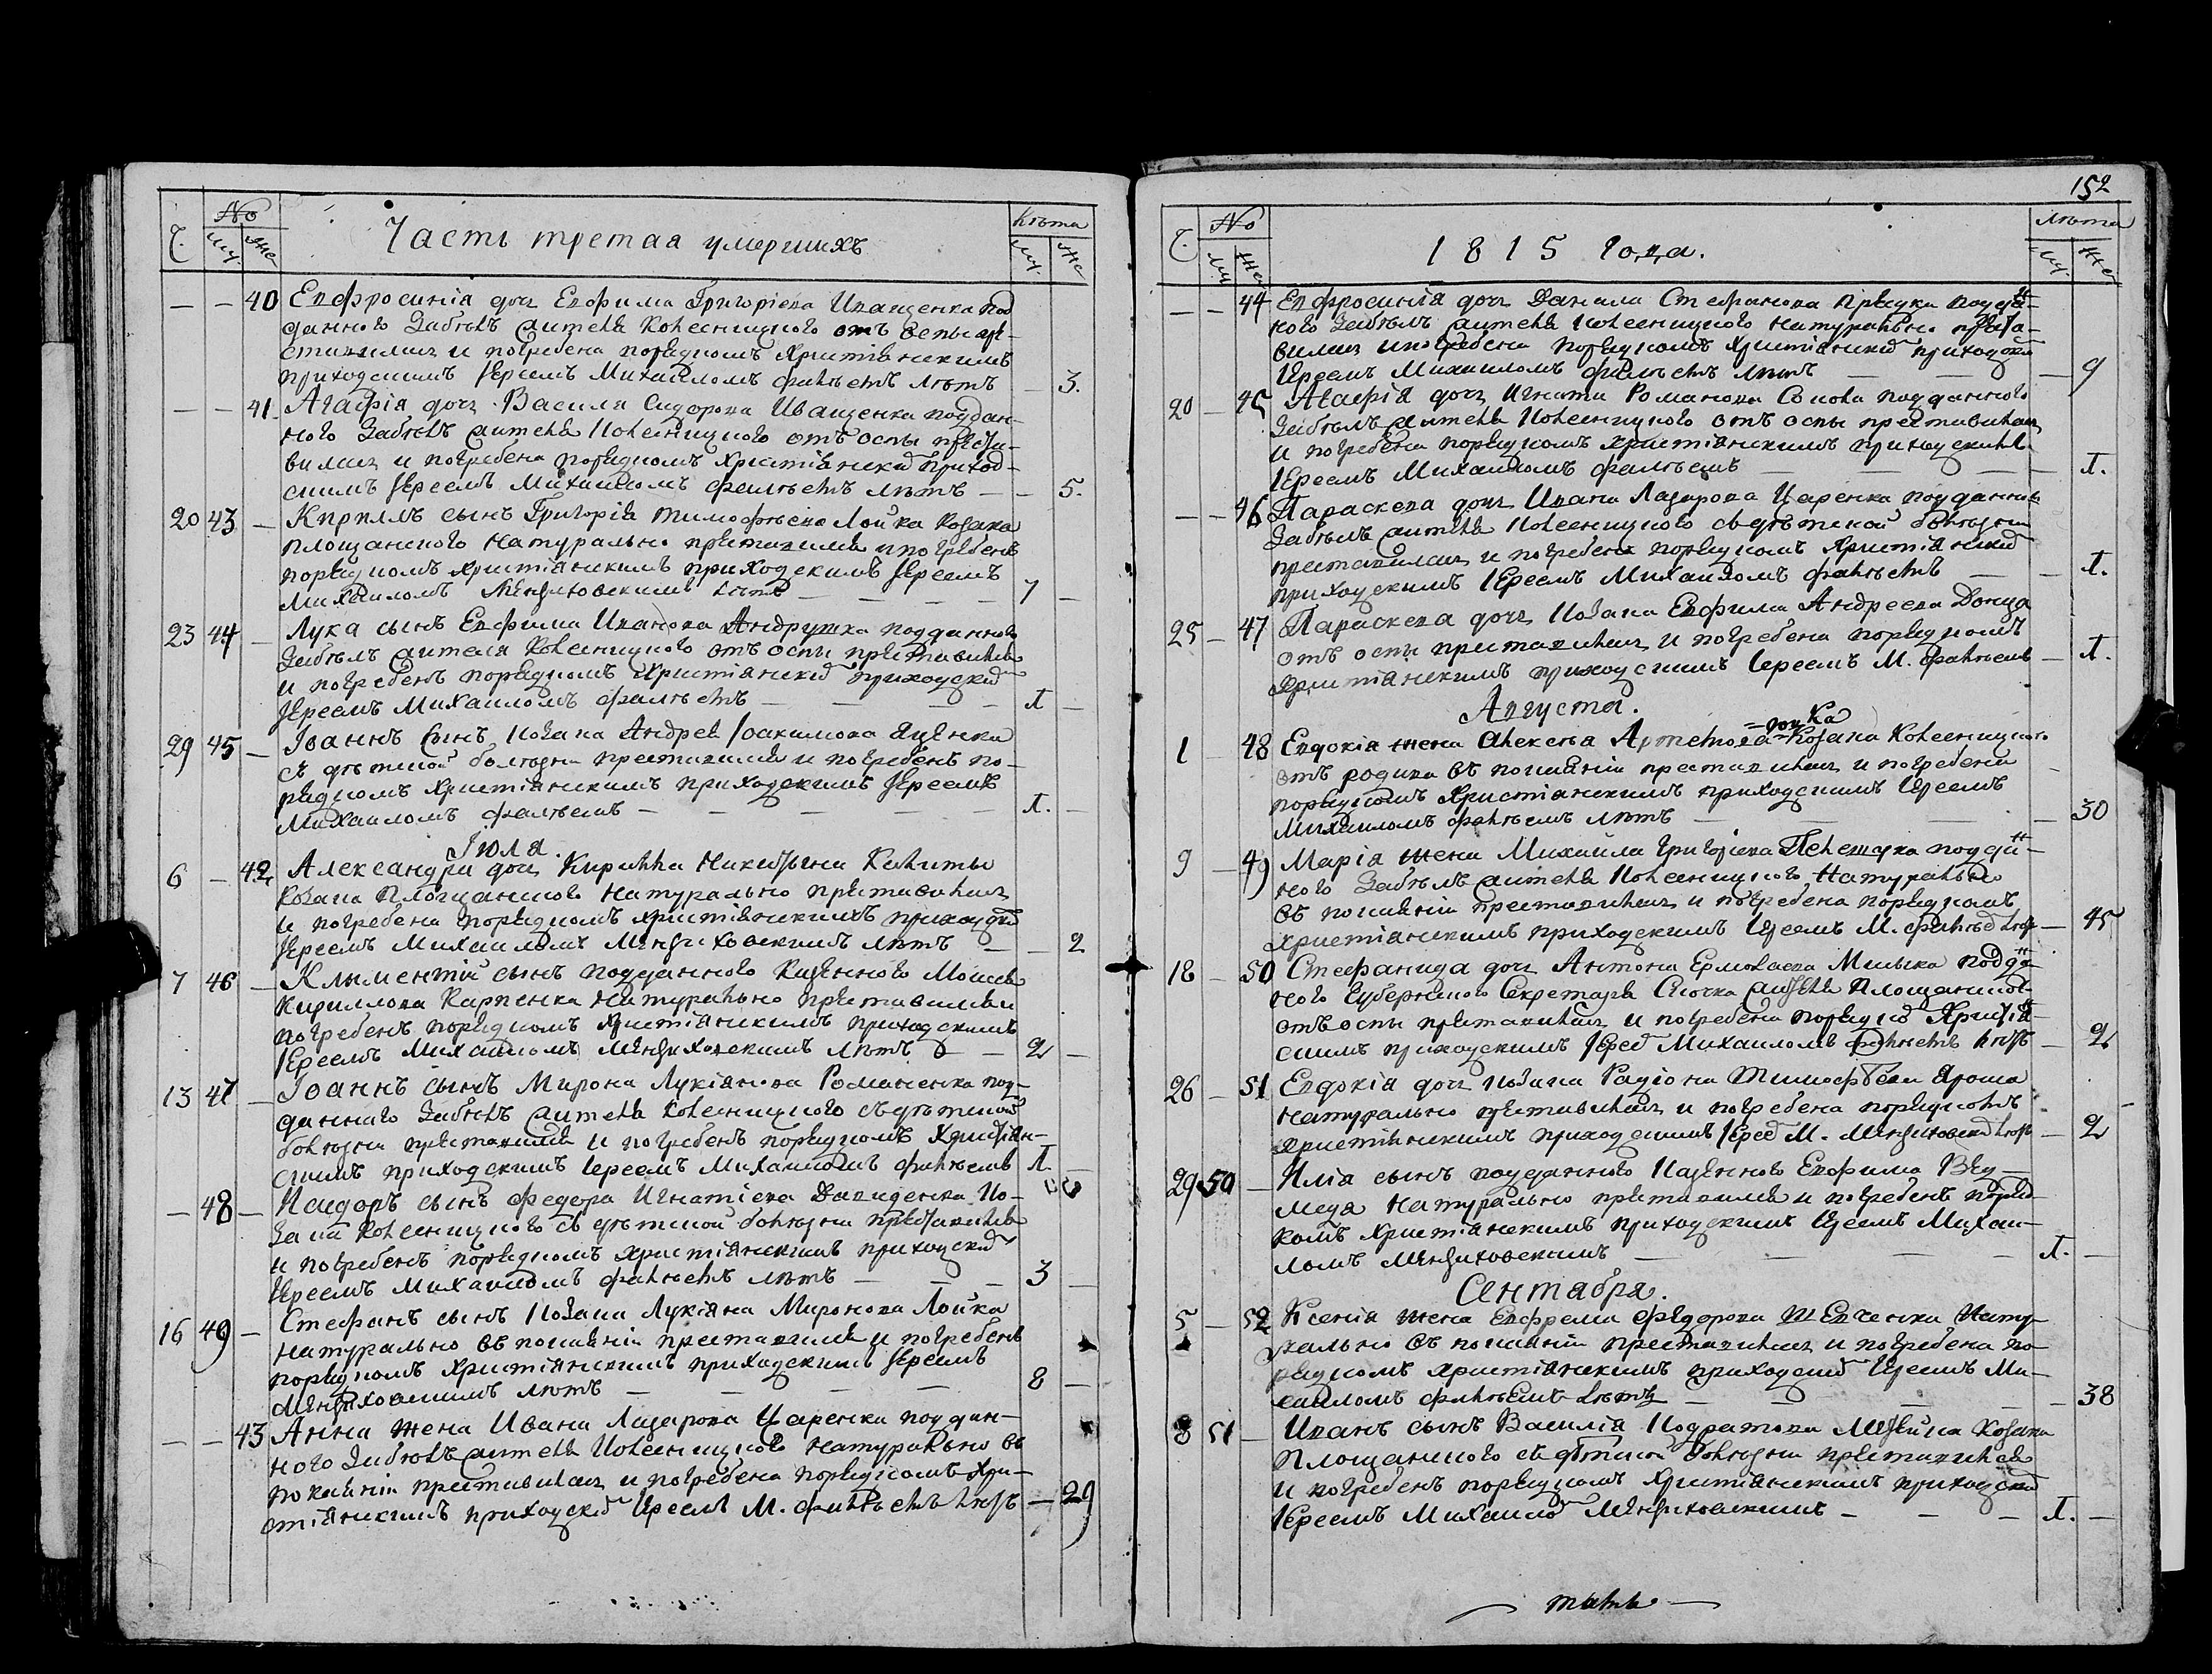 Ч. № му. же. Часть третая умершихъ Лѣта му. же.
— — 40 Евфросинія дочъ Евфима Григоріева Иващенка под
данного Забѣлъ жителя Колесницкого отъ оспы пре-
ставилась и погребена порядкомъ христіянскимъ
приходскимъ Іереемъ Михаиломъ Фалѣемъ лѣтъ — 3.
— — 41 Агафія дочъ Василя Сидорова Иващенка поддан-
ного Забѣлъ жителя Колесницкого отъ оспы преста-
вилась и погребена порядкомъ христіянски приход-
скимъ Іереемъ Михаиломъ Фалѣемъ лѣтъ — — 5.
20 43 — Кирилъ сынъ Григорія Тимофѣева Лойка козака
площанского натурально преставился и погребенъ
порядкомъ христіянскимъ приходскимъ Іереемъ
Михаиломъ Мензиховскимъ лѣтъ — — — 7 —
23 44 — Лука сынъ Евфима Иванова Андрушка подданного
Забѣлъ жителя Колесницкого отъ оспы преставился
и погребенъ порядкомъ христіянски приходски
Іереемъ Михаиломъ Фалѣемъ — — — Л —
29 45 — Іоаннъ сынъ козака Андрея Іоакимова Яценка
съ дѣтской болѣзни преставился и погребенъ по-
рядкомъ христіянскимъ приходскимъ Іереемъ
Михаиломъ Фалѣемъ — — — — Л. —
Іюля.
6 — 42 Александра дочъ Кирилла Никитина Калиты
козака площанского натурально преставилась
и погребена порядкомъ христіянскимъ приходски
Іереемъ Михаиломъ Мензиховскимъ лѣтъ — — 2
7 46 — Климентій сынъ подданного казенного Моисея
Кириллова Карпенка натурально преставился и
погребенъ порядкомъ христіянскимъ приходскимъ
Іереемъ Михаиломъ Мензиховскимъ лѣтъ — 2 —
13 47 — Іоаннъ сынъ Мирона Лукіянова Романенка под-
данного Забѣлъ жителя Колесницкого съ дѣтской
болѣзни преставился и погребенъ порядкомъ христіян-
скимъ приходскимъ Іереемъ Михаиломъ Фалѣемъ Л. —
— 48 — Исидоръ сынъ Федора Игнатіева Давиденка ко-
зака Колесницкого съ дѣтской болѣзни преставился
и погребенъ порядкомъ христіянскимъ приходски
Іереемъ Михаиломъ Фалѣемъ лѣтъ — — — 3 —
16 49 — Стефанъ сынъ козака Лукіяна Миронова Лойка
натурально въ покаяніи преставился и погребенъ
порядкомъ христіянскимъ приходскимъ Іереемъ
Мензиховскимъ лѣтъ — — — — 8 —
— — 43 Анна жена Ивана Лазарова Царенка поддан-
ного Забѣлъ жителя Колесницкого натурально въ
покаяніи преставилась и погребена порядкомъ хри-
стіянскимъ приходски Іереемъ М. Фалѣемъ лѣтъ — 29
152
Ч. № му. же. 1815 года. Лѣта му. же.
— — 44 Евфросинія дочъ Данила Стефанова подда-
ного Забѣлъ жителя Колесницкого натурально преста-
вилась и погребена порядкомъ христіянски приходски
Іереемъ Михаиломъ Фалѣемъ лѣтъ — — 9
20 — 45 Агафія дочъ Игната Романова подданного
Забѣлъ жителя Колесницкого отъ оспы преставилась
и погребена порядкомъ христіянскимъ приходскимъ
Іереемъ Михаиломъ Фалѣемъ — — — Л.
— — 46 Параскева дочъ Ивана Лазарова Царенка подданного
Забѣлъ жителя Колесницкого съ дѣтской болѣзни
преставилась и погребена порядкомъ христіянски
приходскимъ Іереемъ Михаиломъ Фалѣемъ — — Л.
25 — 47 Параскева дочъ козака Евфима Андреева Донца
отъ оспы преставилась и погребена порядкомъ
христіянскимъ приходскимъ Іереемъ М. Фалѣемъ — Л.
Августа.
1 — 48 Евдокія жена Алексѣя Артемова козака Колесницкого
отъ родива въ покаяніи преставилась и погребена
порядкомъ христіянскимъ приходскимъ Іереемъ
Михаиломъ Фалѣемъ лѣтъ — — — 30
9 — 49 Марія жена Михаила Григоріева Пелешука подда-
ного Забѣлъ жителя Колесницкого натурально
въ покаяніи преставилась и погребена порядкомъ
христіянскимъ приходскимъ Іереемъ М. Фалѣе лѣтъ — 45
18 — 50 Стефанида дочъ Антона Ермолаева Милька подда-
ного Губернского Секретаря жителя площанского
отъ оспы преставилась и погребена порядко христіян-
скимъ приходскимъ Іерее Михаиломъ Фалѣемъ лѣтъ — 2
26 — 51 Евдокія дочъ козака Радіона Тимофѣева Яроша
натурально преставилась и погребена порядкомъ
христіянскимъ приходскимъ Іерее М. Мензиховски лѣтъ — 2
29 50 — Илія сынъ подданного казенного Евфима Вед-
медя натурально преставился и погребенъ поряд-
комъ христіянскимъ приходскимъ Іереемъ Михаи-
ломъ Мензиховскимъ — — — — Л. —
Сентабря.
5 — 52 Ксенія жена Евфрема Федорова Шевченка нату-
рально въ покаяніи преставилась и погребена по-
рядкомъ христіянскимъ приходски Іереемъ Ми-
хаиломъ Фалѣемъ лѣтъ — — — — 38
8 51 — Иванъ сынъ Василія Кодратова козака
Площанского съ дѣтской болѣзни преставился
и погребенъ порядкомъ христіянскимъ приходски
Іереемъ Михаило Мензиховскимъ — — — Л. —